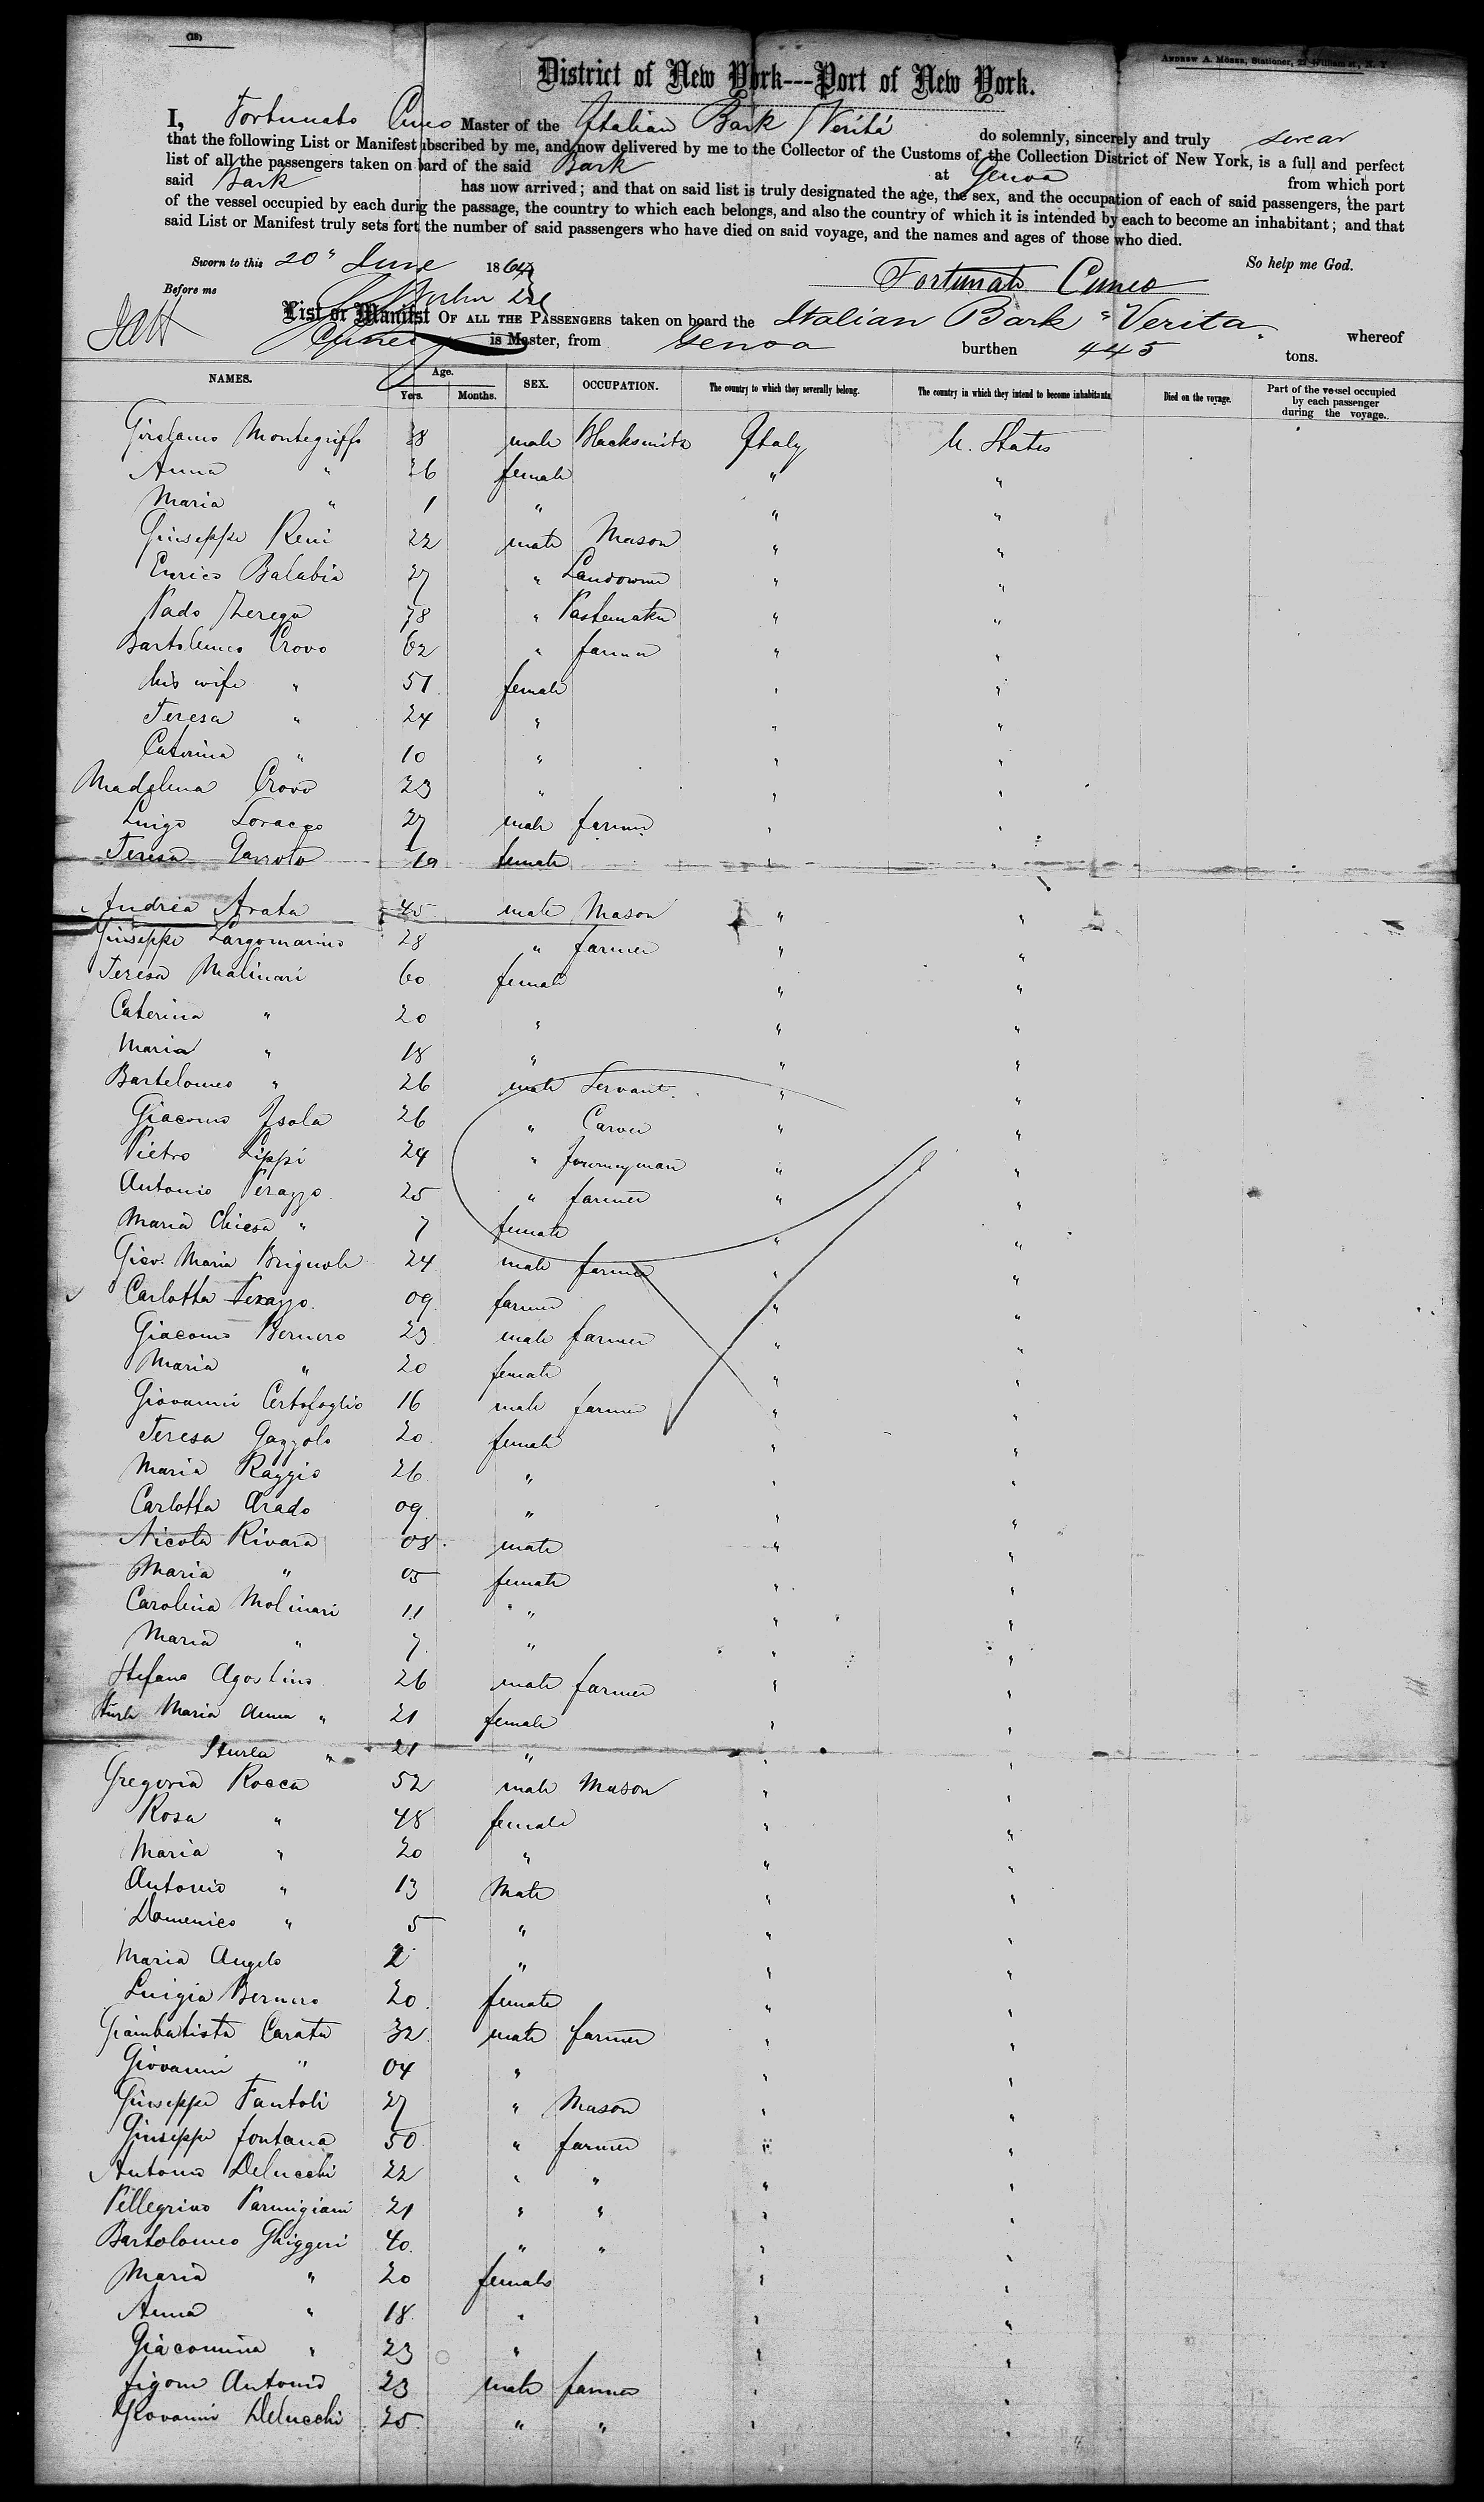 (18)
ANDREW A. MOSHER, Stationer, William st., N. Y
District of New York---Port of New York.
I, Fortunato Cuneo Master of the Italian Bark Verità do solemnly, sincerely and truly swear
that the following List or Manifest ubscribed by me, and now delivered by me to the Collector of the Customs of the Collection District of New York, is a full and perfect
list of all the passengers taken on bard of the said Bark at Genoa from which port
said Bark has now arrived; and that on said list is truly designated the age, the sex, and the occupation of each of said passengers, the part
of the vessel occupied by each durig the passage, the country to which each belongs, and also the country of which it is intended by each to become an inhabitant; and that
said List or Manifest truly sets fort the number of said passengers who have died on said voyage, and the names and ages of those who died.
Sworn to this 20" June 1864 So help me God.
Before me Fortunato Cuneo
List or Manifst OF ALL THE PASSENGERS taken on board the Italian Bark "Verita" whereof
Cuneo is Master, from Genoa burthen 445 tons.
NAMES. Age. Yers. Months. SEX. OCCUPATION. The country to which they severally belong. The country in which they intend to become inhabitants. Died on the voyage. Part of the vessel occupied by each passenger during the voyage.
Girolamo Montegriffo 38 male Blacksmith Italy U. States
Anna " 26 female " "
Maria " 1 " " "
Giuseppe Reni 22 male Mason " "
Enrico Balabia 27 " Landowner " "
Pado Zerega 78 " Pastemaker " "
Bartolomeo Crovo 62 " farmer " "
his wife " 51 female " "
Teresa " 24 " " "
Caterina " 10 " " "
Madalena Crovo 23 " " "
Luigo Soracco 27 male farmer " "
Teresa Garroto 19 female " "
Andrea Arata 45 male Mason " "
Giuseppe Largomarino 28 " farmer " "
Teresa Malinari 60 female " "
Caterina " 20 " " "
Maria " 18 " " "
Bartolomeo " 26 male Servant " "
Giacomo Isola 26 " Carver " "
Pietro Lippi 24 " Journeyman " "
Antonio Perazzo 25 " farmer " "
Maria Chiesa " 7 female " "
Giov. Maria Brignole 24 male farmer " "
Carlotta Perazzo 09 farmer " "
Giacomo Bernero 23 male farmer " "
Maria " 20 female " "
Giovanni Certofoglio 16 male farmer " "
Teresa Gazzolo 20 female " "
Maria Raggio 26 " " "
Carlotta Arado 09 " " "
Nicola Rivara 08 male " "
Maria " 05 female " "
Carolina Molinari 11 " " "
Maria " 7 " " "
Stefano Agostino 26 male farmer " "
Maria Anna " 21 female " "
Sturla " 21 " " "
Gregoria Rocca 52 male Mason " "
Rosa " 48 female " "
Maria " 20 " " "
Antonio " 13 Male " "
Domenico " 5 " " "
Maria Angelo 2 " " "
Luigia Bernero 20 female " "
Giambatista Carata 32 male farmer " "
Giovanni " 04 " " "
Giuseppe Fantoli 27 " Mason " "
Giuseppe fontana 50 " farmer " "
Antonio Delucchi 22 " " " "
Pellegrino Parmigiani 21 " " " "
Bartolomeo Ghiggeri 40 " " " "
Maria " 20 female " "
Anna " 18 " " "
Giacomina " 23 " " "
figone Antonio 23 male farmer " "
Giovanni Delucchi 25 " " " "